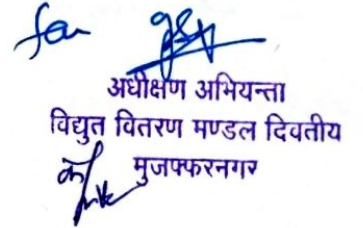 for
अधीक्षण अभियन्ता
विद्युत वितरण मण्डल दिवतीय
मुजफ्फरनगर